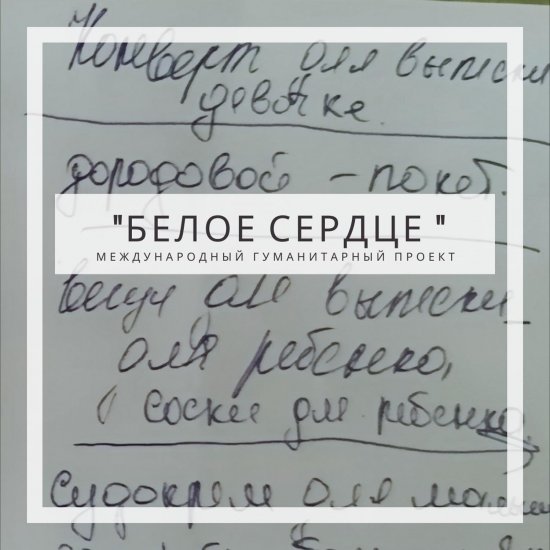 Конверт для выписки
девочке.
дородовой - покет.
"БЕЛОЕ СЕРДЦЕ "
МЕЖДУНАРОДНЫЙ ГУМАНИТАРНЫЙ ПРОЕКТ
Вещи для выписки
для ребенка,
соски для ребенка
Судокрем для